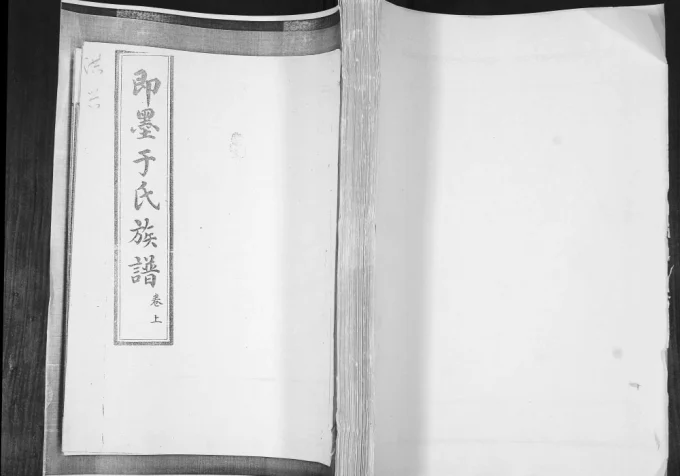 即墨于氏族譜
卷上